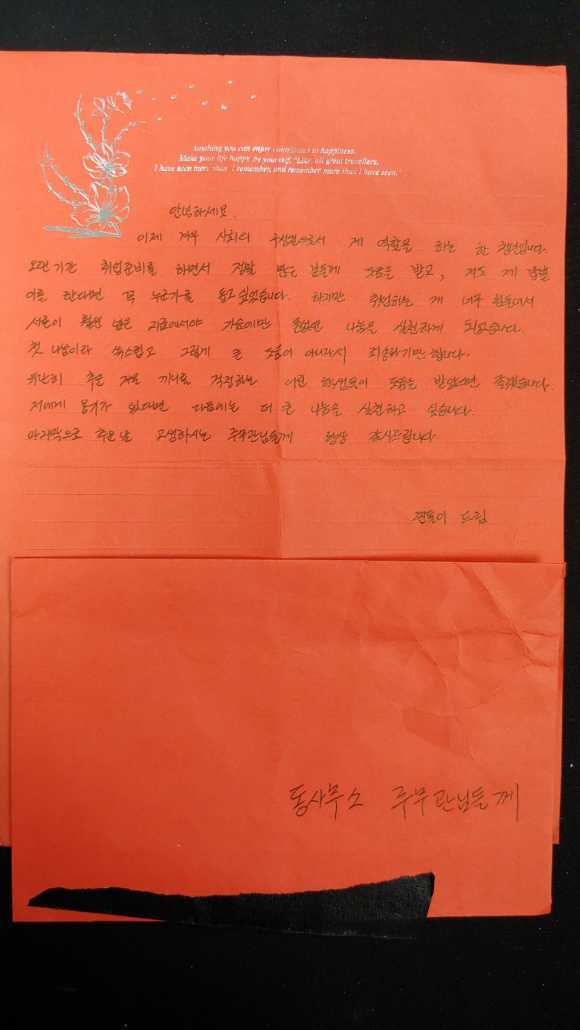 Anything you can enjoy contributes to happiness.
Make your life happy by yourself. "Like all great travellers,
I have seen more than I remember, and remember more than I have seen."
안녕하세요.
이제 겨우 사회의 구성원으로서 제 역할을 하는 한 청년입니다.
오랜기간 취업준비를 하면서 정말 많은 분들께 도움을 받고, 저도 제 밥벌
이를 한다면 꼭 누군가를 돕고 싶었습니다. 하지만 취업하는 게 너무 힘들어서
서른이 훨씬 넘은 지금에서야 가슴에만 품었던 나눔을 실천하게 되었습니다.
첫 나눔이라 쑥스럽고 그렇게 큰 도움이 아니라서 죄송하기만 합니다.
유난히 추운 겨울 끼니를 걱정하는 어린 학생들이 도움을 받았으면 좋겠습니다.
저에게 용기가 있다면 다음에는 더 큰 나눔을 실천하고 싶습니다.
마지막으로 추운날 고생하시는 주무관님들께 항상 감사드립니다
드림
동사무소 주무관님들께